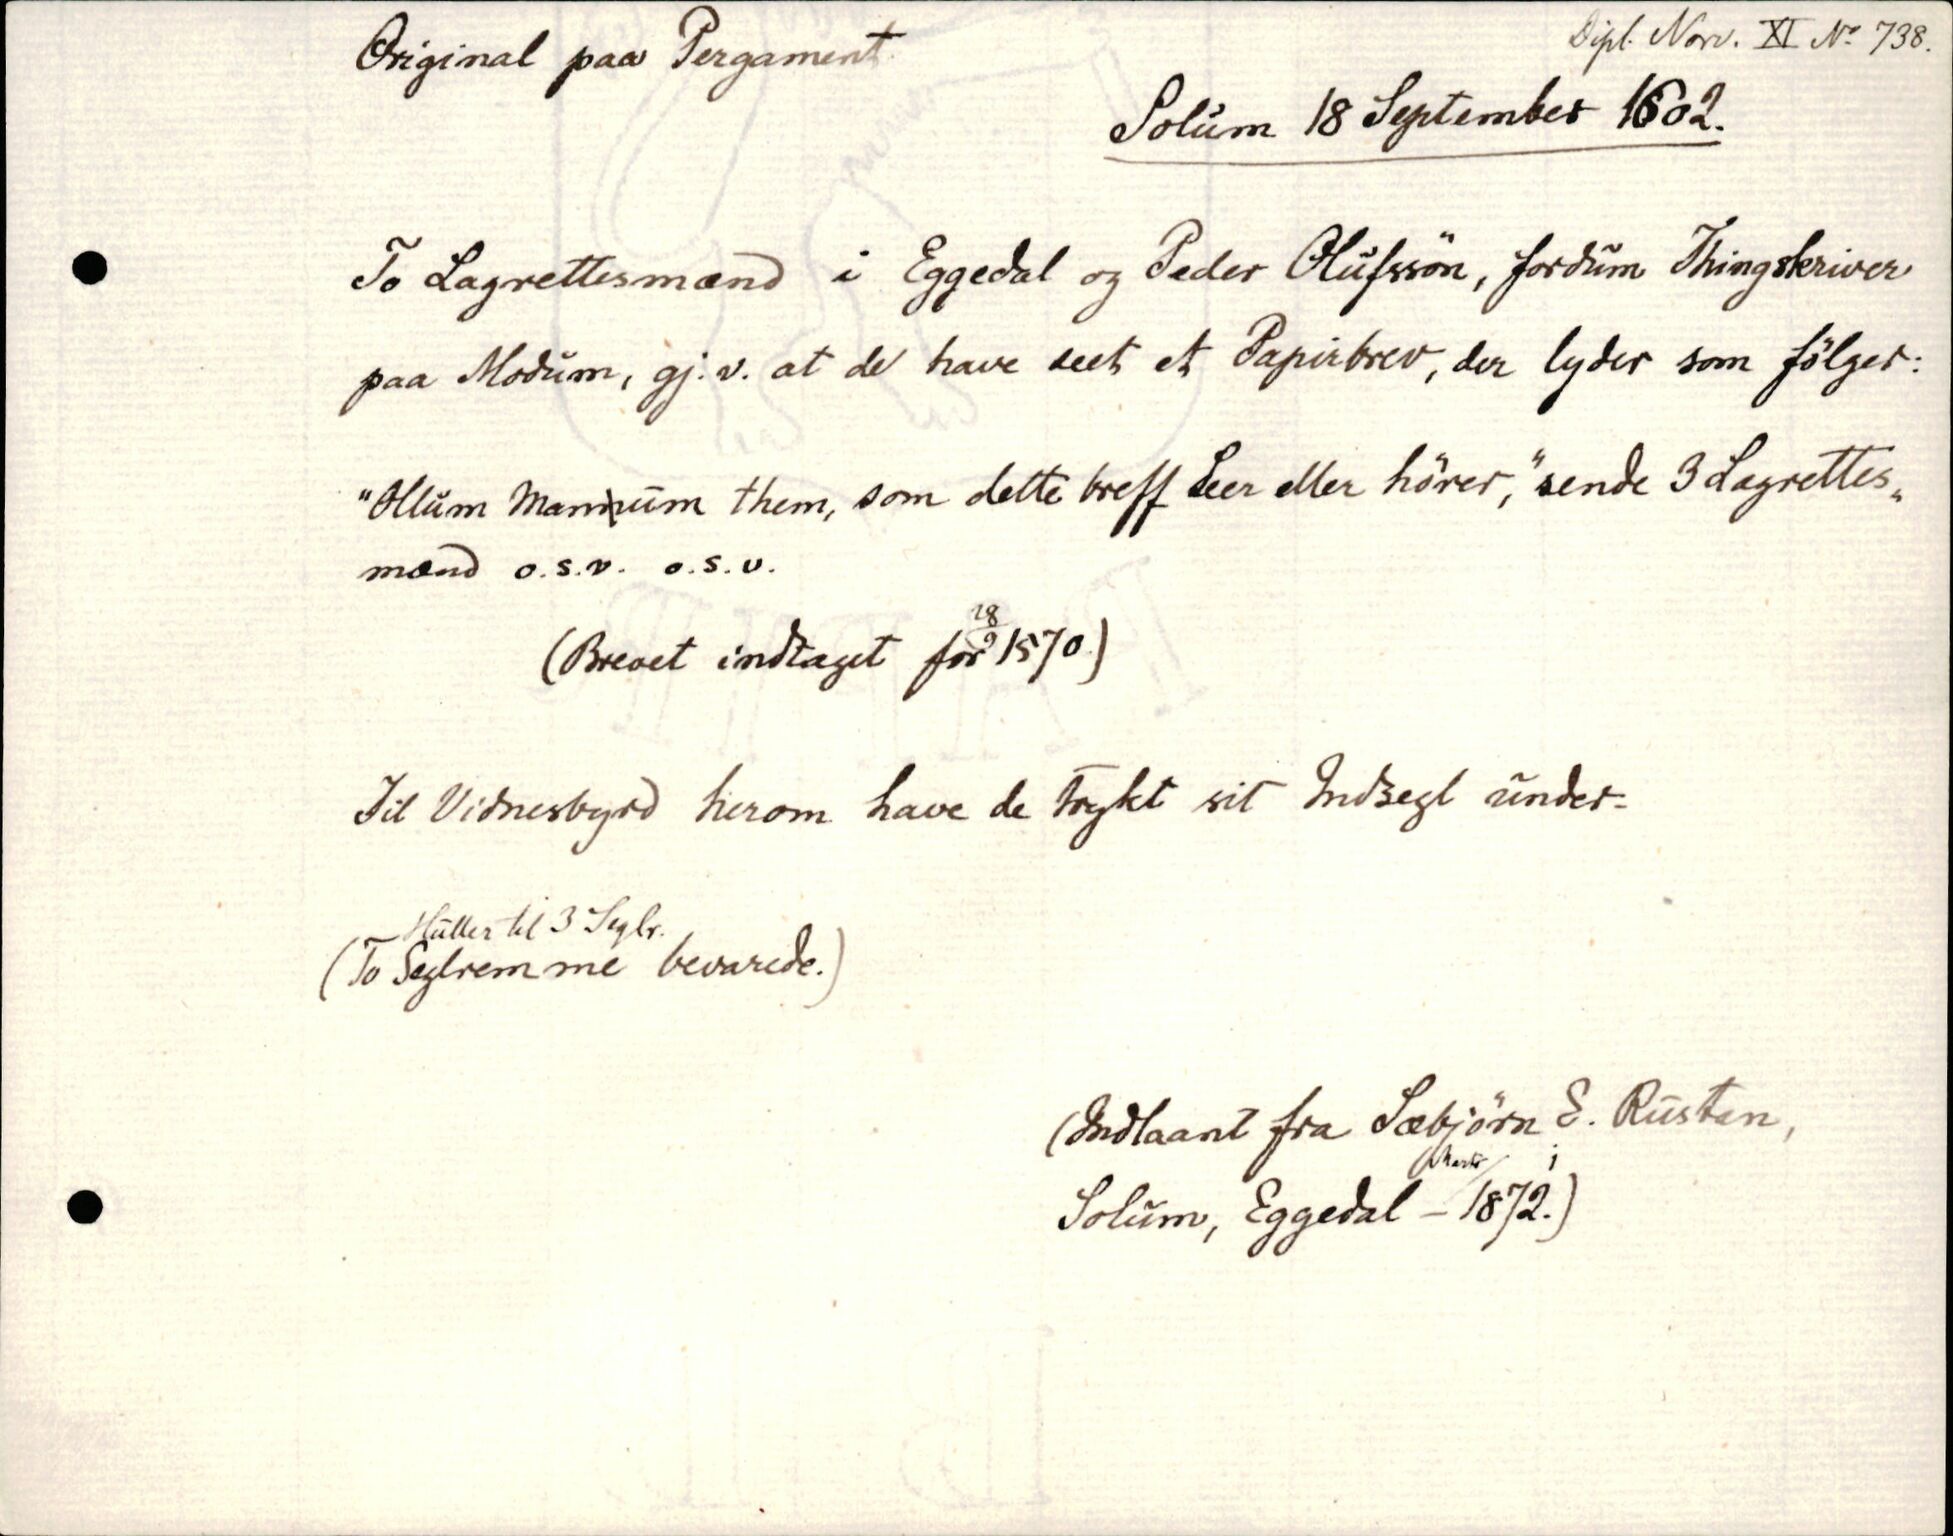 Dipl. Norv. XI No 738.
Original paa Pergament
Solum 18 September 1602.
To Lagrettesmænd i Eggedal og Peder Olufssön, fordum Thingskriver
paa Modum, gj. v. at de have seet et Papirbrev, der lyder som fölger:
"Ollum Mannum them, som dette breff seer eller hörer," sende 3 Lagrettes„
mænd o.s.v. o.s.v.
(Brevet indtaget for 28/9 1570.)
Til Vidnesbyrd herom have de trykt sit Indsegl under-
Huller til 3 Seglr.
(To Seglremme bevarede.)
(Indlaant fra Sæbjörn E. Rustan,
Marts i
Solum, Eggedal – 1872.)